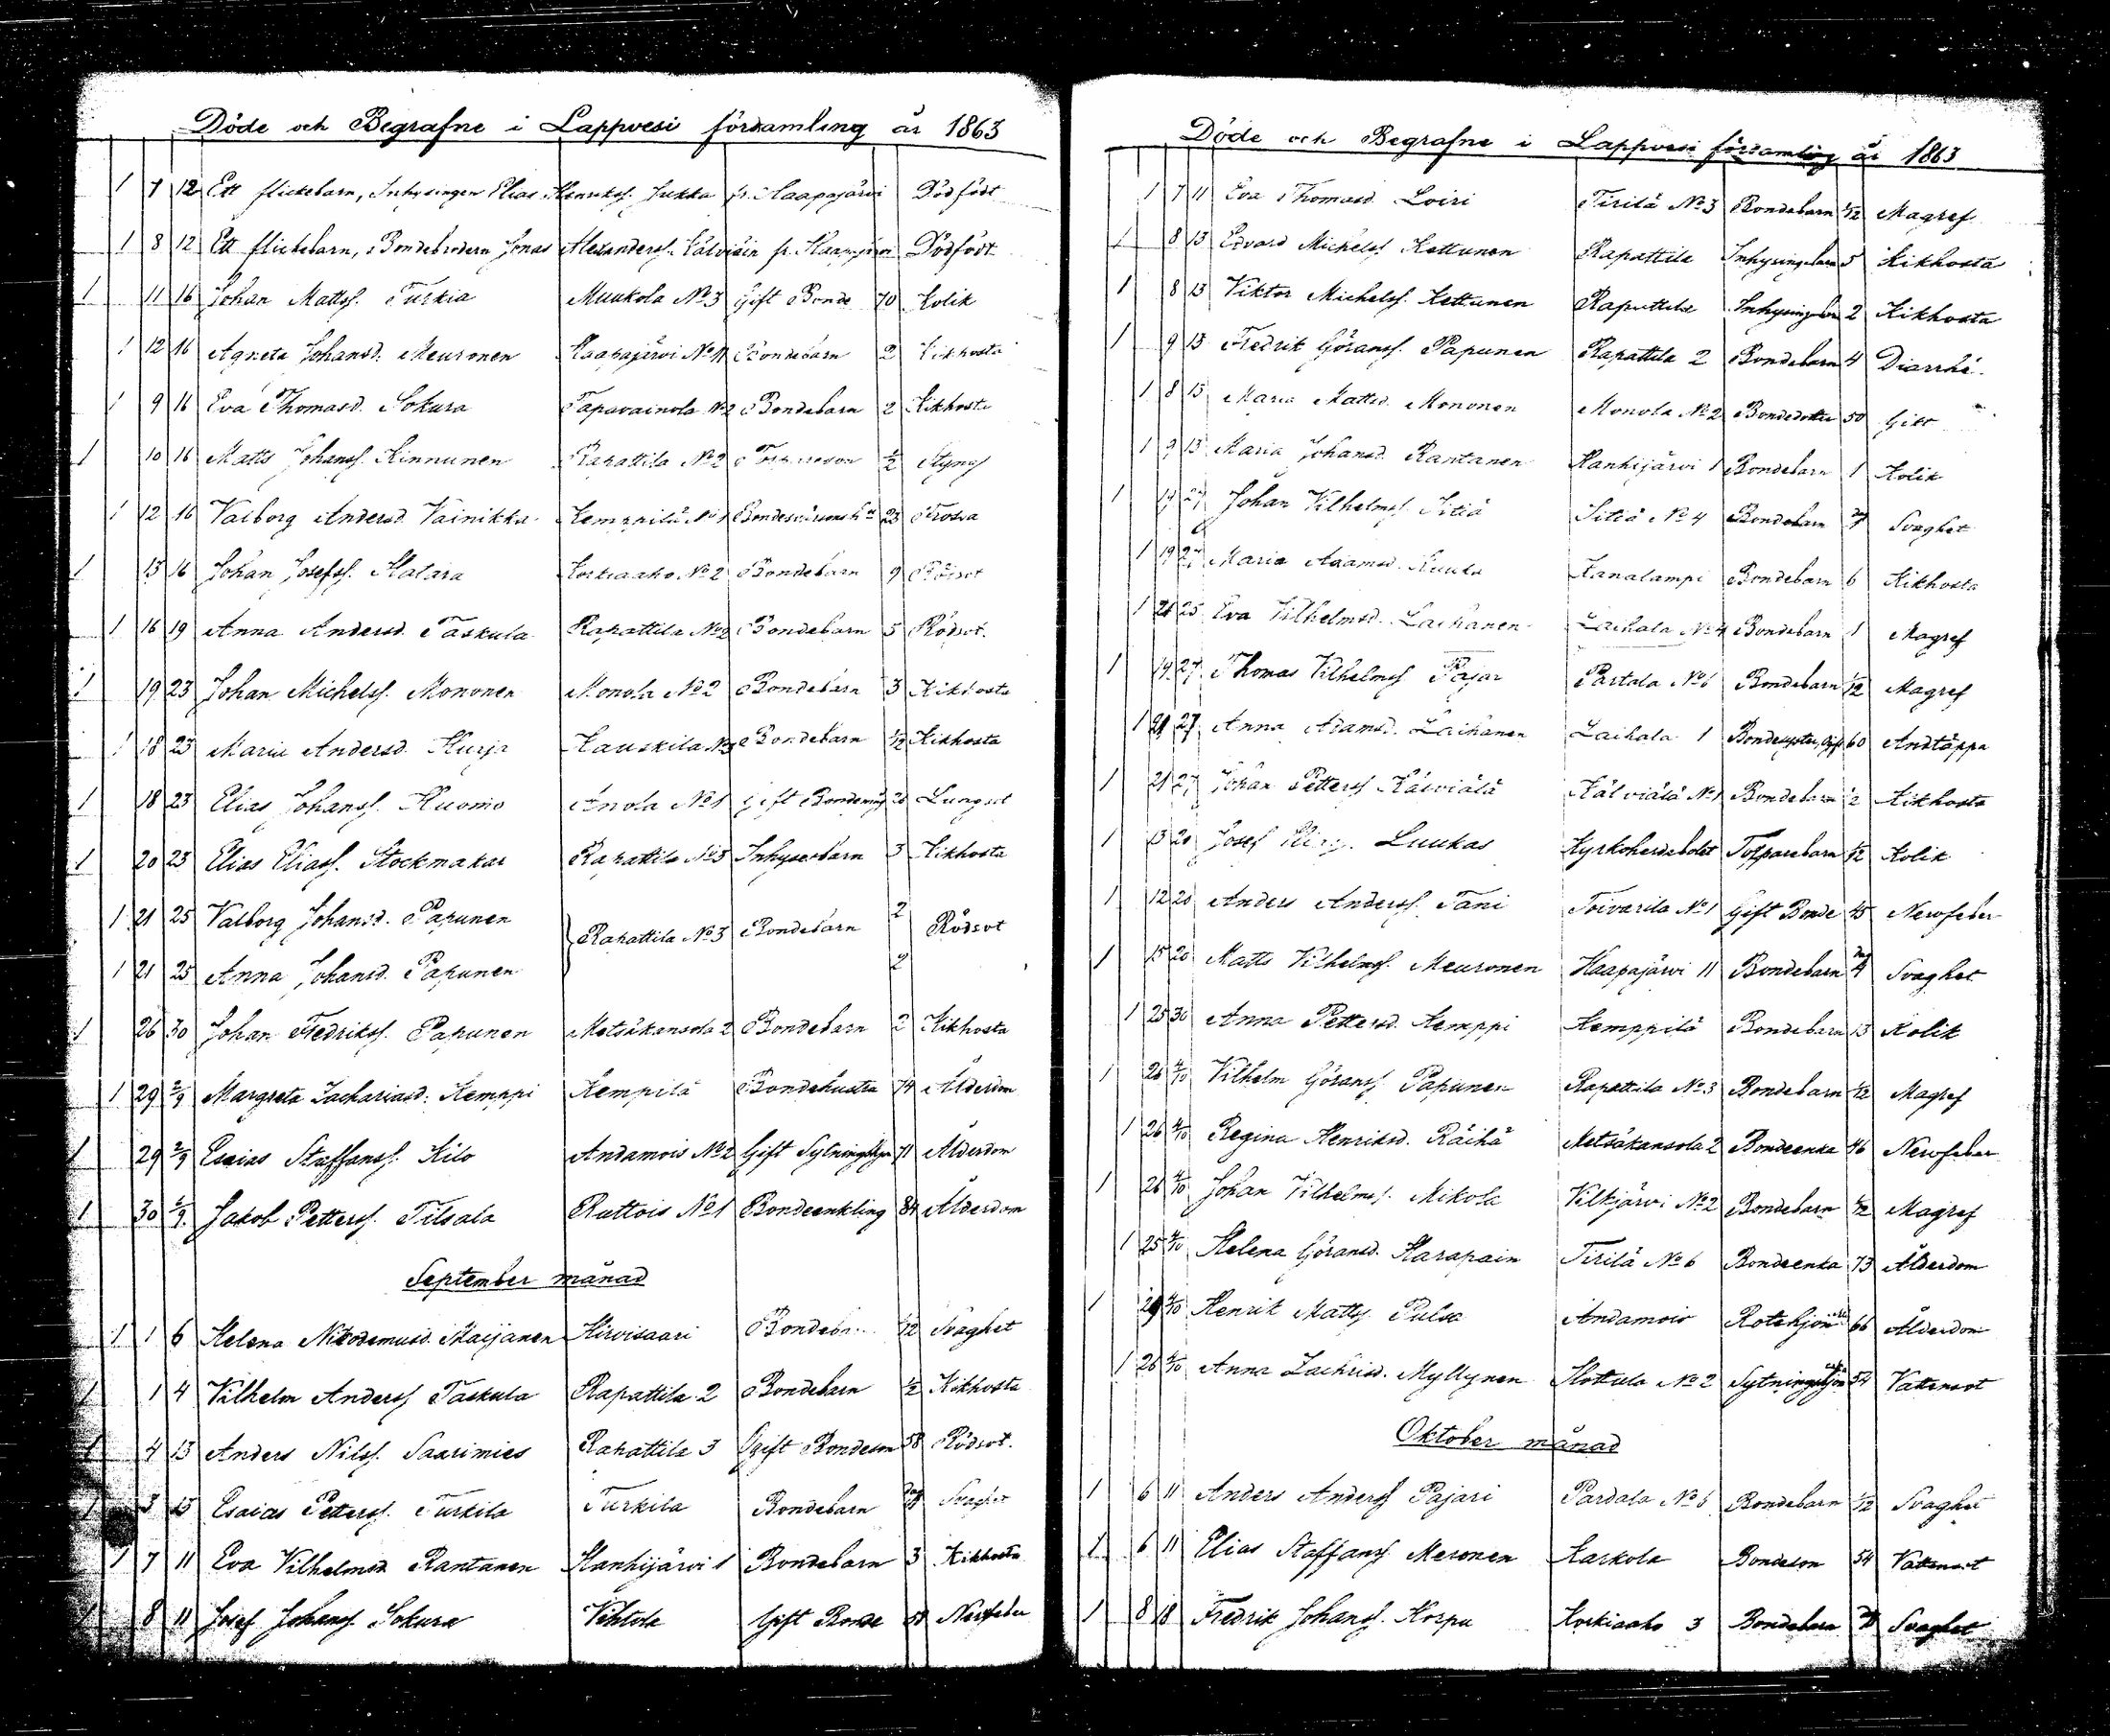 Döde och Begrafne i Lappvesi församling år 1863
1 7 12 Ett flickebarn, Inhysingen Elias Henrikss. Jukka fr. Haapajärvi Dödfödt
1 8 12 Ett flickebarn, Bondebrodern Jonas Alexanderss. Kälviäin fr. Haapajärvi Dödfödt
1 11 16 Johan Mattss. Turkia Muukola No 3 Gift Bonde 70 Kolik
1 12 16 Agneta Johansd. Meuronen Haapajärvi No 11 Bondebarn 2 Kikhosta
1 9 16 Eva Thomasd. Sokura Tapavainola No 2 Bondebarn 2 Kikhosta
1 10 16 Matts Johanss. Kinnunen Rapattila No 2 1/2
1 12 16 Valborg Andersd. Vainikka Kemppilä No 1 23
1 13 16 Johan Josefss. Korkiaaho No 2 Bondebarn 9 Rödsot
1 16 19 Anna Andersd. Taskula Rapattila No 2 Bondebarn 5 Rödsot.
1 19 23 Johan Michelss. Mononen Monola No 2 Bondebarn 3 Kikhosta
1 18 23 Maria Andersd. Kurja Hauskila No 3 Bondebarn 1/12 Kikhosta
1 18 23 Elias Johanss. Kuomo Anola No 1 Gift Bondemåg Lungsot
1 20 23 Elias Eliass. Stockmakar Rapattila No 3 Inhyserbarn 3 Kikhosta
1 21 25 Valborg Johansd. Papunen 2
Rapattila No 3 Bondebarn Rödsot
1 21 25 Anna Johansd. Papunen 2
1 26 30 Johan Fredrikss. Papunen Metsäkansola 2 Bondebarn 2 Kikhosta
1 29 2/9 Margreta Zachariasd. Kemppi Kempilä Bondehustru 74 Ålderdom
1 29 2/9 Esaias Staffanss. Kilo Andamois No 2 Gift Sytningshjon 71 Ålderdom
1 30 2/9 Jakob Petterss. Tilsala Ruttois No 1 Bondeenkling 84 Ålderdom
September månad
1 1 6 Helena Nikodemusd. Maijanen Hirvisaari Bondebn. 1/12 Svaghet
1 1 4 Vilhelm Anderss. Taskula Rapattila 2 Bondebarn 1/2 Kikhosta
1 4 13 Anders Nilss. Saarimies Rapattila 3 Ogift Bondeson 58 Rödsot.
1 3 13 Esaias Petterss. Turkila Turkila Bondebarn Svaghet
1 7 11 Eva Vilhelmsd. Rantanen Hanhijärvi 1 Bondebarn 3 Kikhosta
1 8 11 Josef Johanss. Sokura Vihtola Gift Bonde 58 Nervfeber
Döde och Begrafne i Lappvesi församling år 1863
1 7 11 Eva Thomasd. Loiri Tirilä No 3 Bondebarn 1/12 Magref
1 8 13 Edvard Michelss. Kettunen Rapattila Inhysingebarn 5 Kikhosta
1 8 13 Viktor Michelss. Kettunen Rapattila Inhysingebarn 2 Kikhosta
1 9 13 Fredrik Göranss. Papunen Rapattila 2 Bondebarn 4 Diarrhé.
1 8 13 Maria Mattsd. Mononen Monola No 2 Bondedotter 50 Gikt
1 9 13 Maria Johansd. Rantanen Hanhijärvi 1 Bondebarn 1 Kolik
1 19 27 Johan Vilhelmss. Sitiä Sitiä No 4 Bondebarn Svaghet
1 19 27 Maria Adamsd. Kuuka Kanalampi Bondebarn 6 Kikhosta
1 21 25 Eva Vilhelmsd. Laihanen Laihala No 4 Bondebarn 1 Magref
1 19 27 Thomas Vilhelmss Pajar Partala No 6 Bondebarn 1/12 Magref
1 21 27 Anna Adamsd. Laihanen Laihala 1 60 Andtäppa
1 21 27 Johan Petterss Kälviälä Kälviälä No 1 Bondebarn 2 Kikhosta
1 13 20 Josef Luukas Kyrkoherdebolet Torparebarn 1/12 Kolik
1 12 20 Anders Anderss. Tani Toivarila No 1 Gift Bonde 45 Nervfeber
1 15 20 Matts Vilhelmss. Meuronen Haapajärvi 11 Bondebarn Svaghet
1 25 30 Anna Pettersd. Kemppi Kemppilä Bondebarn 13 Kolik
1 26 4/10 Vilhelm Göranss Papunen Rapattila No 3 Bondebarn 1/12 Magref
1 26 4/10 Regina Henriksd. Räihä Metsäkansola 2 Bondeenka 46 Nervfeber
1 26 4/10 Johan Vilhelmss. Mikola Vilkjärvi No 2 Bondebarn 1/12 Magref
1 25 4/10 Helena Göransd. Harapain Tirilä No 6 Bondeenka 73 Ålderdom
1 29 4/10 Henrik Mattss Pulsa Andamois Rotehjon 66 Ålderdom
1 26 4/10 Anna Zachrisd. Myllynen Hottula No 2 Sytningshjon 54 Vattensot
Oktober månad
1 6 11 Anders Anderss Pajari Pardala No 6 Bondebarn 1/12 Svaghet
1 6 11 Elias Staffanss Meronen Karkola Bondeson 54 Vattensot
1 8 18 Fredrik Johanss. Korpu Korkiaaho 3 Bondebarn Svaghet